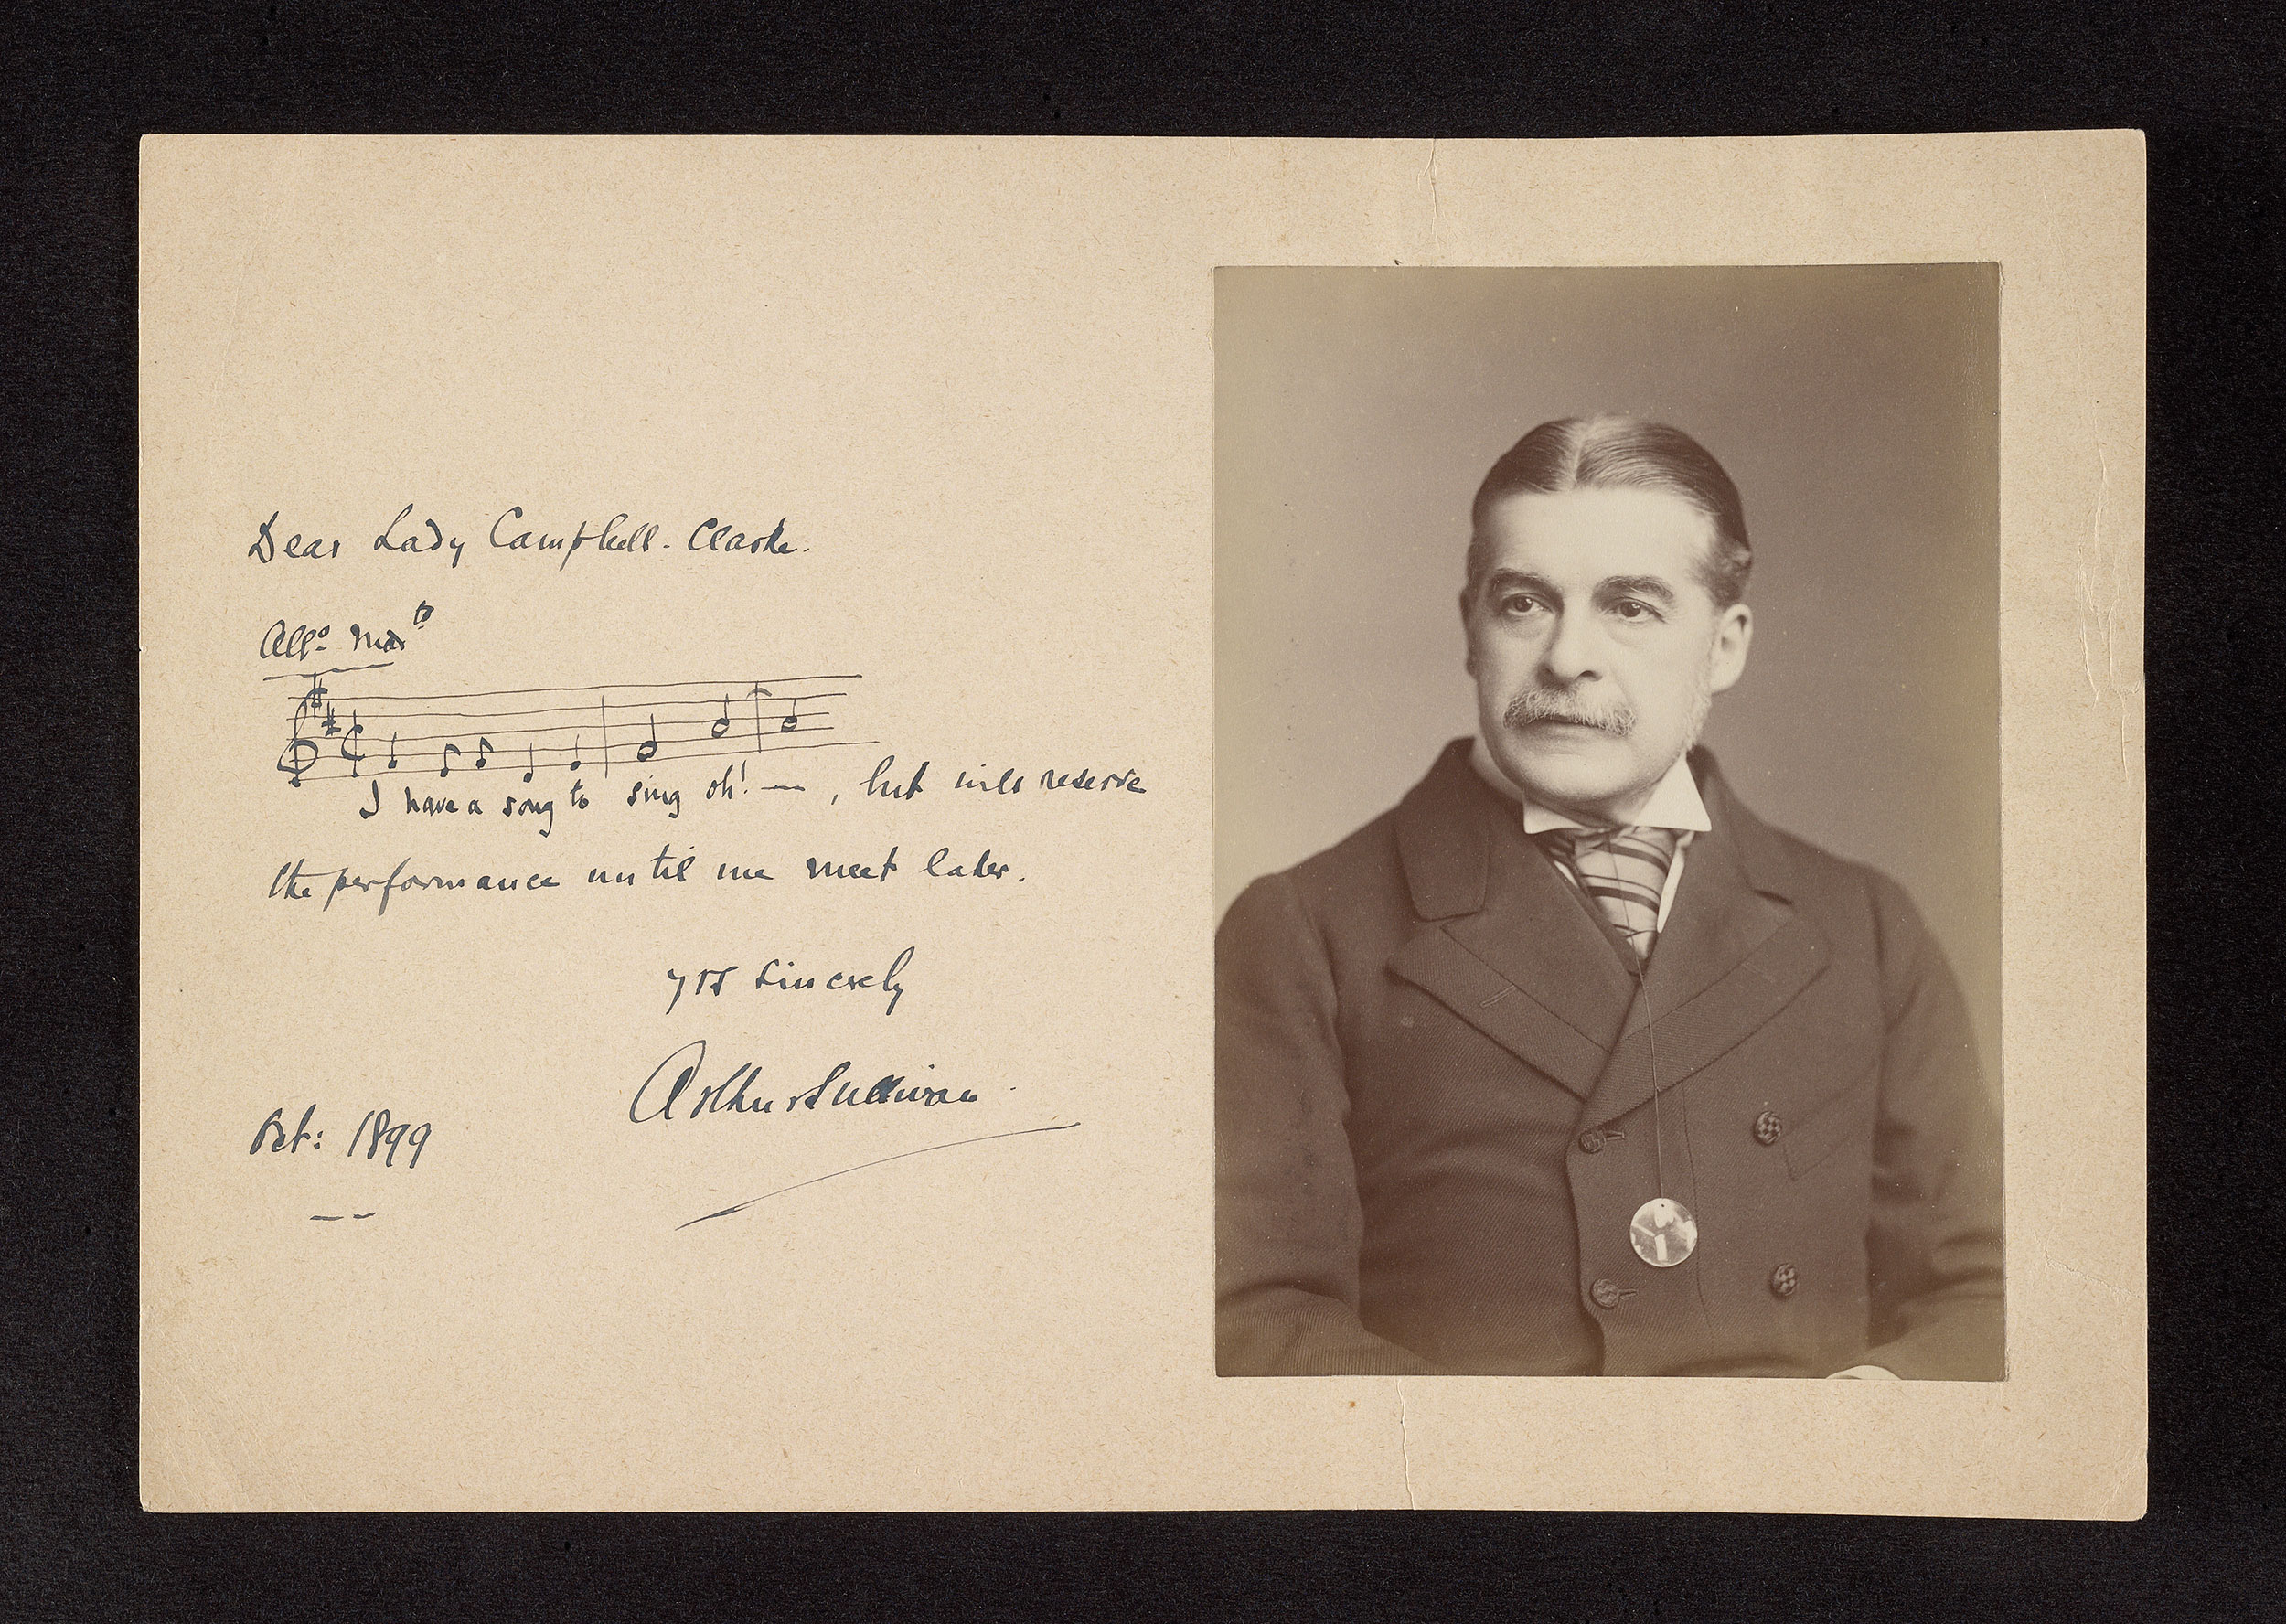 Dear Lady Campbell-Clarke.
Allo. Modto
I have a song to sing oh! — , but will reserve
the performance until we meet later.
yrs sincerely
Arthur Sullivan
Oct: 1899